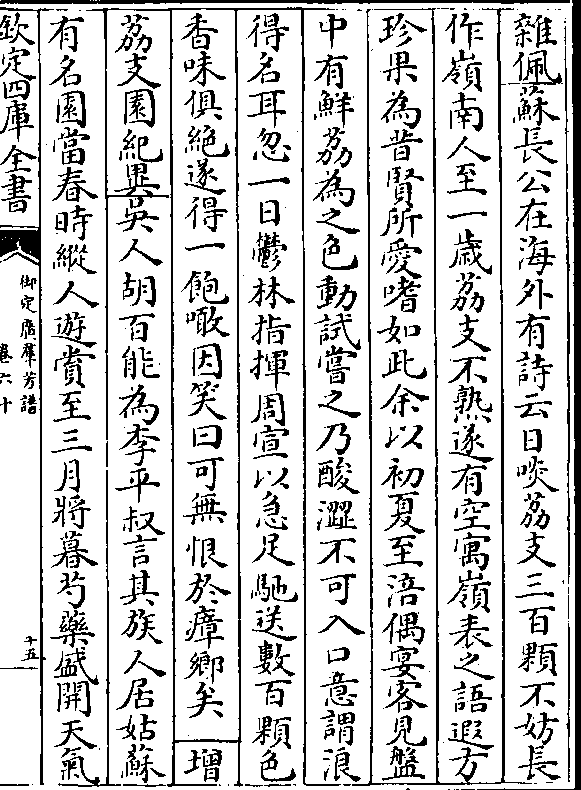 雜佩蘇長公在海外有詩云日啖荔支三百顆不妨長
作嶺南人至一歲荔支不熟遂有空寓嶺表之語遐方
珍果為昔賢所愛嗜如此余以初夏至浯偶宴客見盤
中有鮮荔為之色動試嘗之乃酸澀不可入口意謂浪
得名耳忽一日鬱林指揮周宣以急足馳送數百顆色
香味俱絕遂得一飽噉因笑曰可無恨於瘴鄉矣 增
荔支園紀異吳人胡百能為李平叔言其族人居姑蘇
有名園當春時縱人遊賞至三月將暮芍藥盛開天氣
欽定四庫全書
御定廣羣芳譜
卷六十
十五